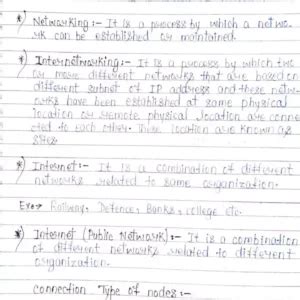 *) Networking :- It is a process by which a netwo-
rk can be established or maintained.
*) Internetworking :- It is a process by which two
or more different networks that are based on
different subnet of IP address and these netw-
orks have been established at same physical
location or remote physical location are conne
cted to each other. These location are known as
Sites.
*) Internet :- It is a combination of different
networks related to same organization.
Ex:→ Railway, Defence, Banks, college etc.
*) Internet (Public Network) :- It is a combination
of different networks related to different
organization.
Connection Type of nodes :-